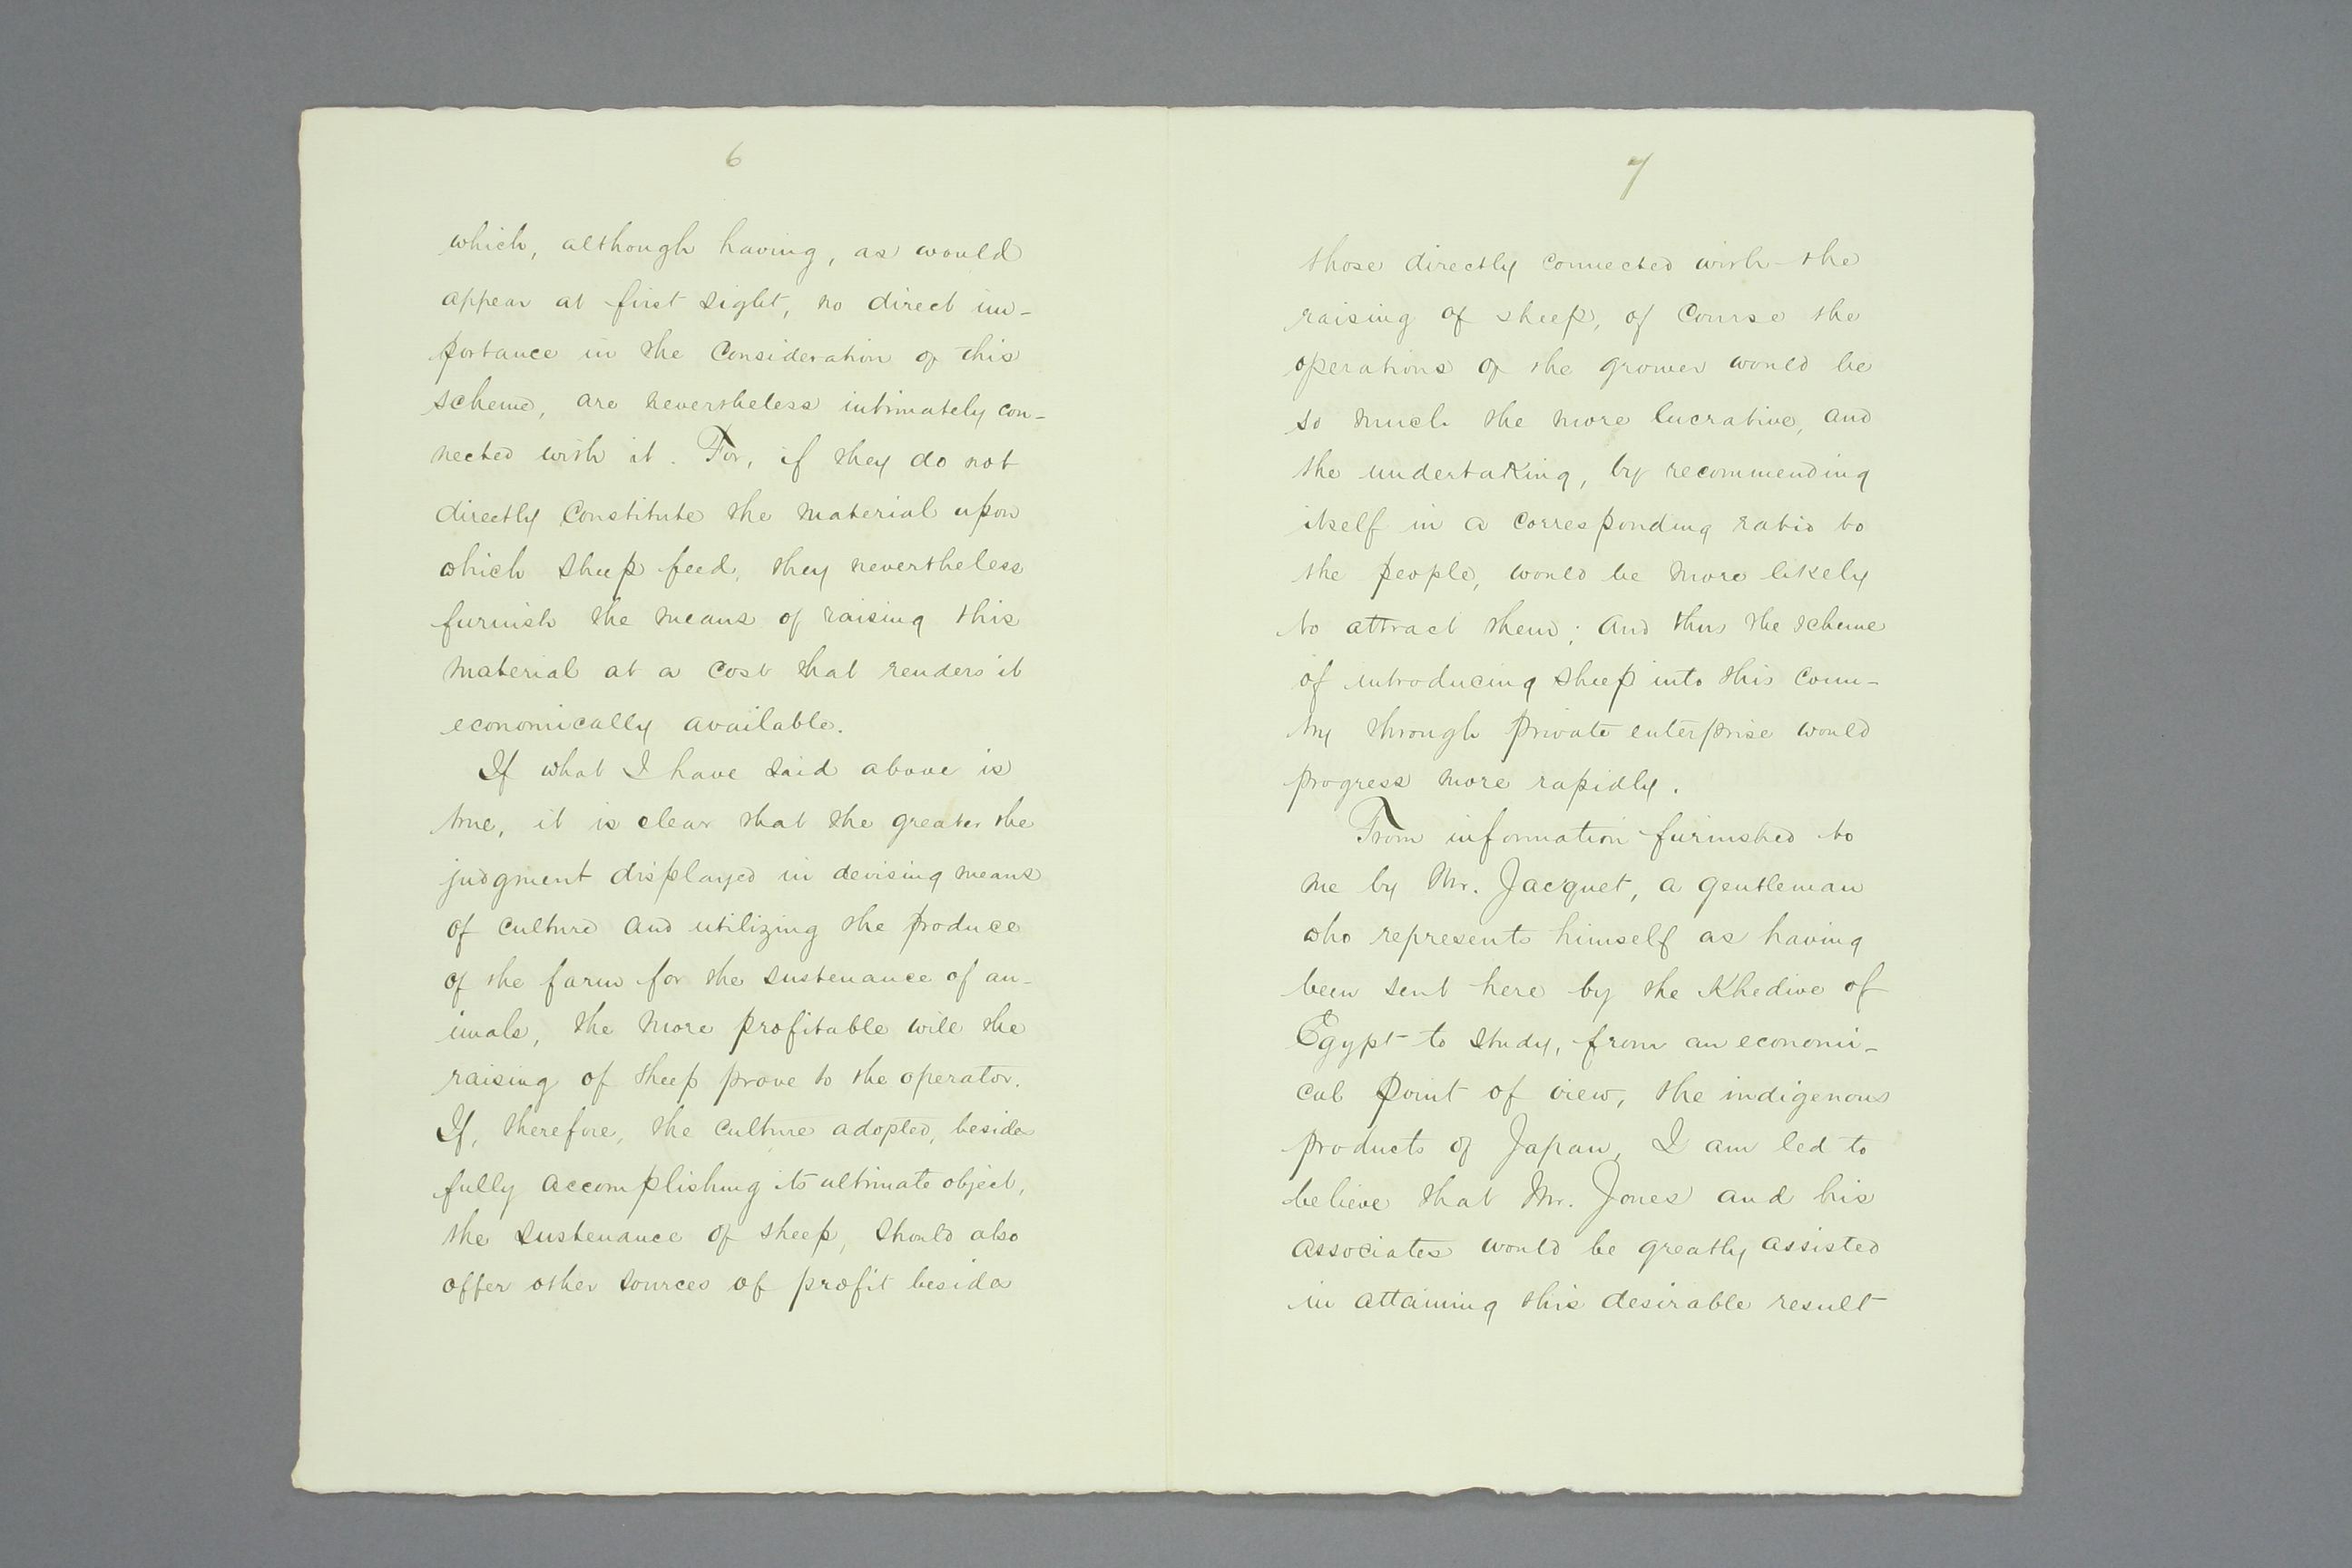 6
which, although having, as would
appear at first sight, no direct im-
portance in the consideration of this
scheme, are nevertheless intimately con-
nected with it. For, if they do not
directly constitute the material upon
which sheep feed, they nevertheless
furnish the means of raising this
material at a cost that renders it
economically available.
If what I have said above is
true, it is clear that the greater the
judgment displayed in devising means
of culture and utilizing the produce
of the farm for the sustenance of an-
imals, the more profitable will the
raising of sheep prove to the operator.
If, therefore, the culture adopted, beside
fully accomplishing its ultimate object,
the sustenance of sheep, should also
offer other sources of profit beside
7
those directly connected with the
raising of sheep, of course the
operations of the grower would be
so much the more lucrative, and
the undertaking, by recommending
itself in a corresponding ratio to
the people, would be more likely
to attract them; and thus the scheme
of introducing sheep into this coun-
try through private enterprise would
progress more rapidly.
From information furnished to
me by Mr. Jacquet, a gentleman
who represents himself as having
been sent here by the Khedive of
Egypt to study, from an economi-
cal point of view, the indigenous
products of Japan, I am led to
believe that Mr. Jones and his
associates would be greatly assisted
in attaining this desirable result